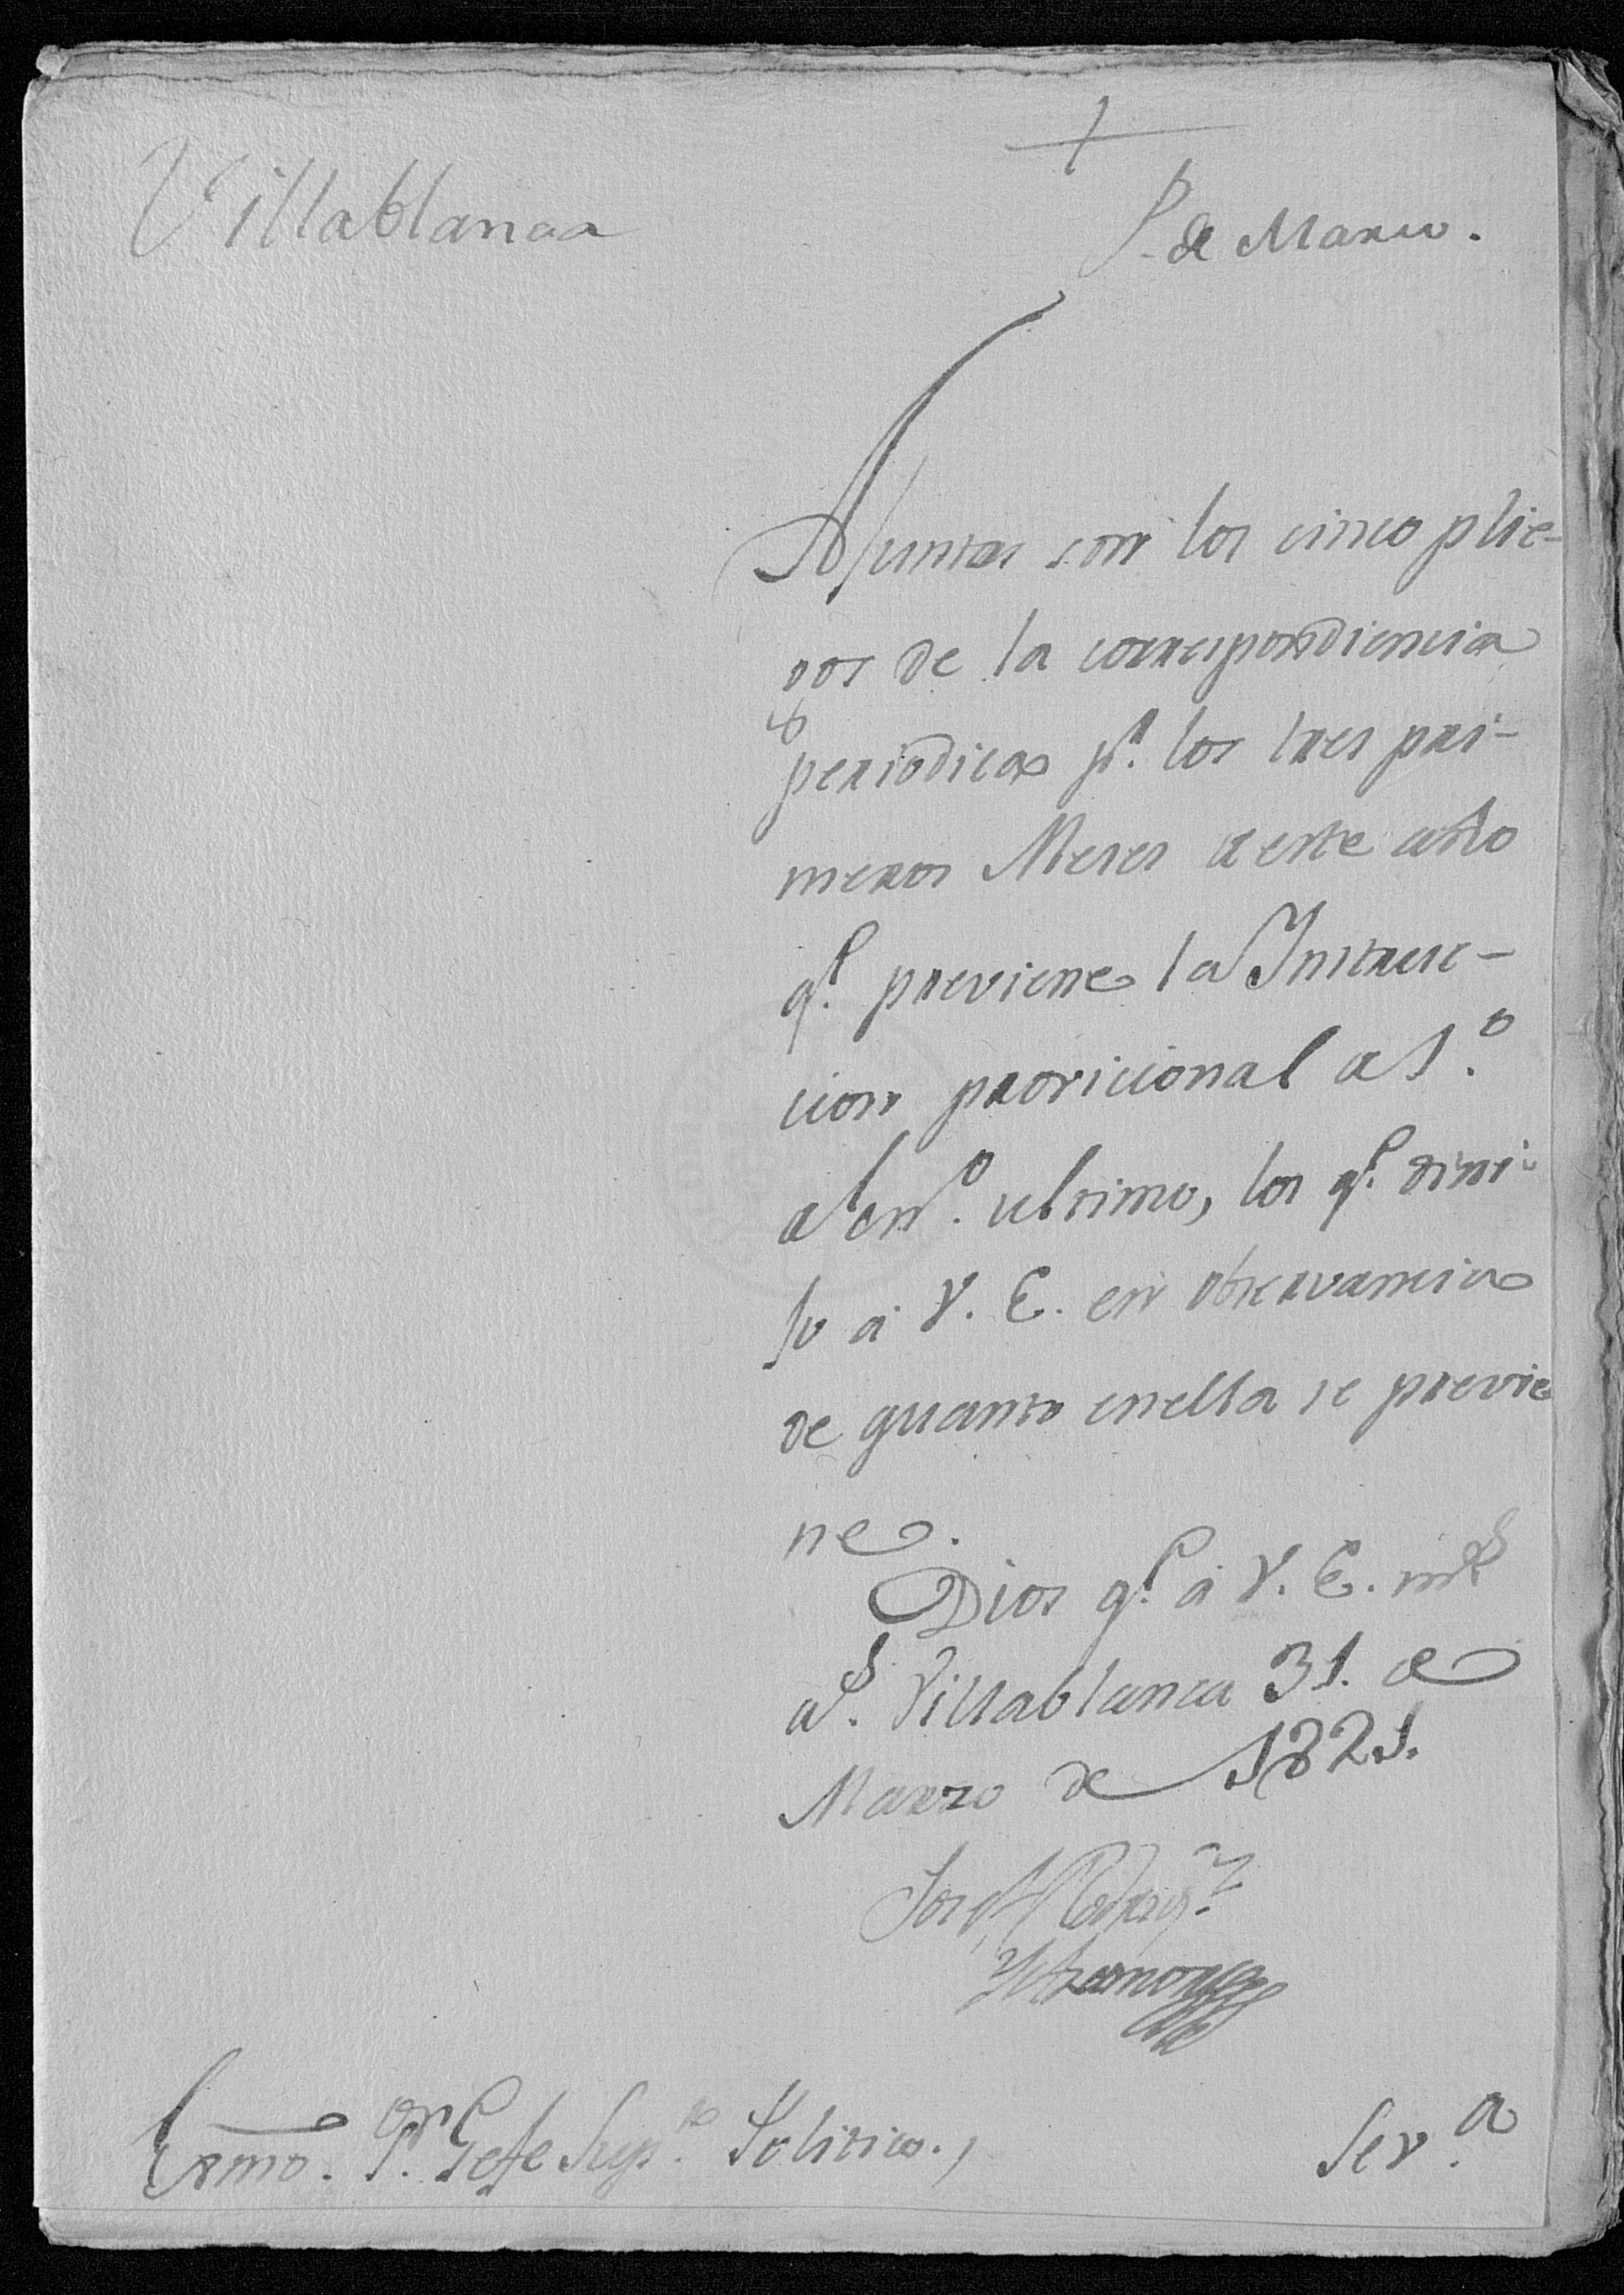 Villablanca
P. de Marzo.
Ajuntas son los cinco plie-
gos de la correspondiencia
periodica pª. los tres pri-
meros Meses de este año
qᵉ. previene la Instruc-
cion provicional de 1.º
de Enº. ultimo, los qᵉ. diri-
jo á V. E. en observancia
de quanto en ella se previe
ne.
Dios gᵉ. á V. E. mˢ
aˢ. Villablanca 31. de
Marzo de 1821.
Josef Rodrigᶻ.
Exmo. Sᵒʳ. Gefe Supᵒʳ. Politico.,
Sevª.